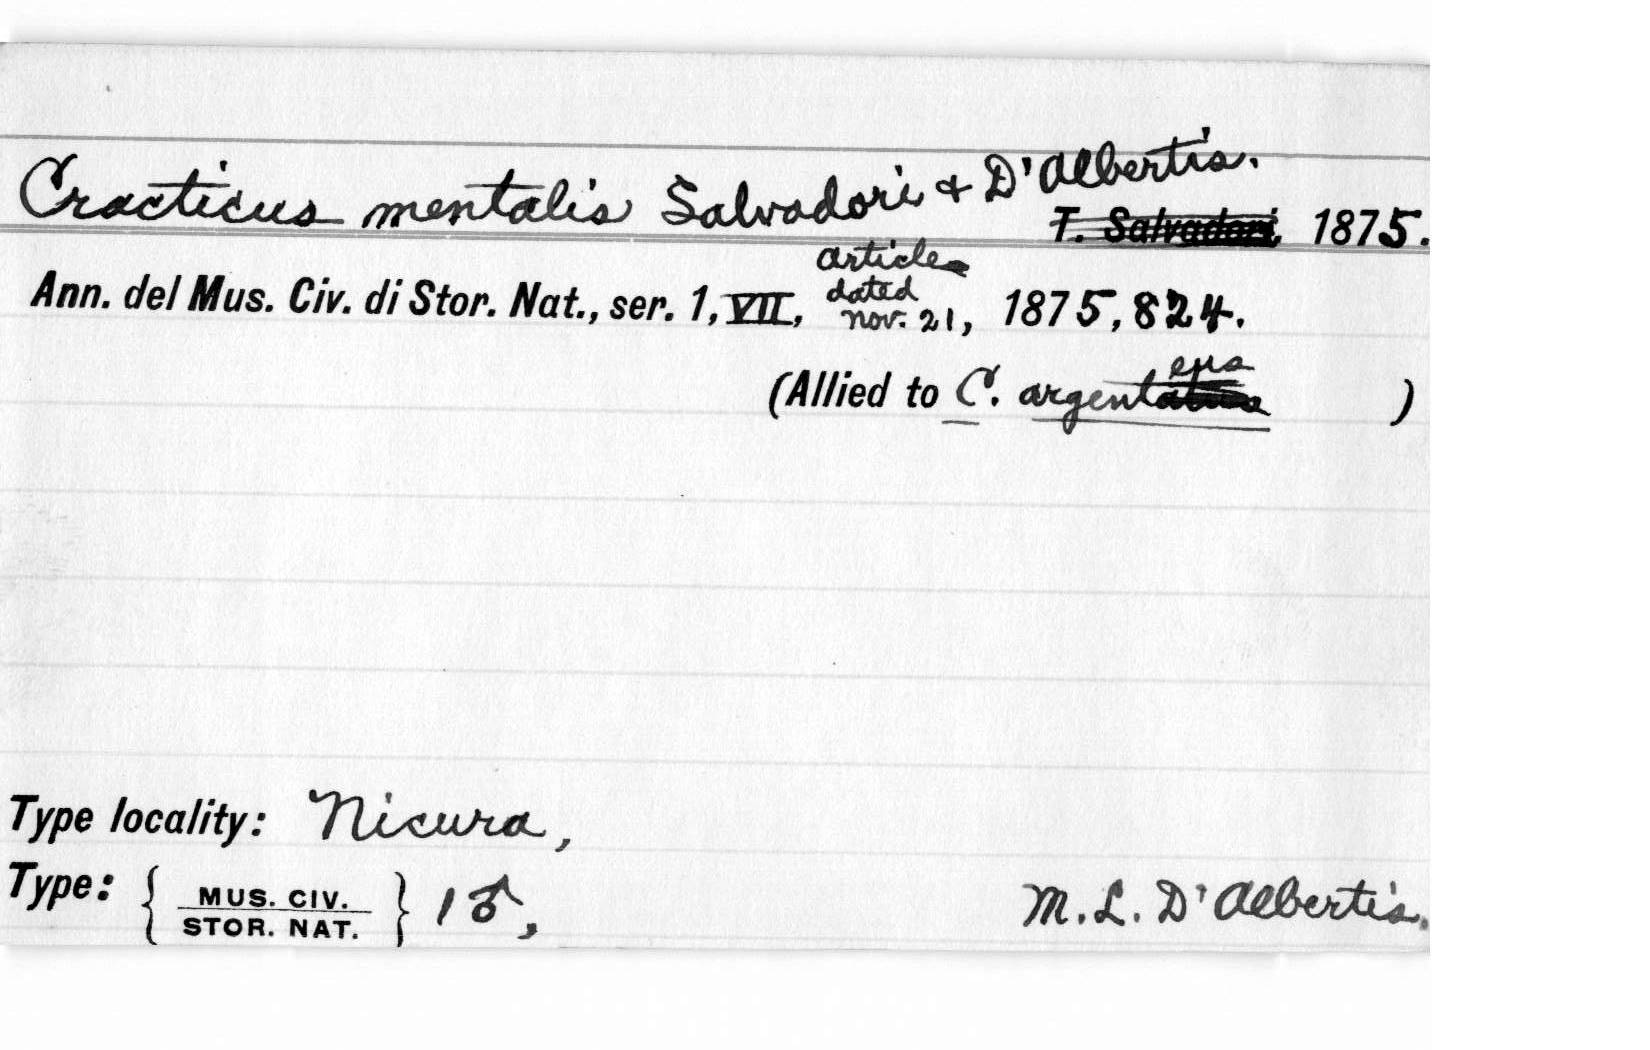 Cracticus mentalis Salvadori & D'Albertis.
T. Salvadori, 1875.
article
Ann. del Mus. Civ. di Stor. Nat., ser. 1, VII, dated nov. 21, 1875, 824.
(Allied to C. argenteus)
Type locality: Nicura,
Type: { MUS. CIV. STOR. NAT. } 1♂, M. L. D'Albertis.